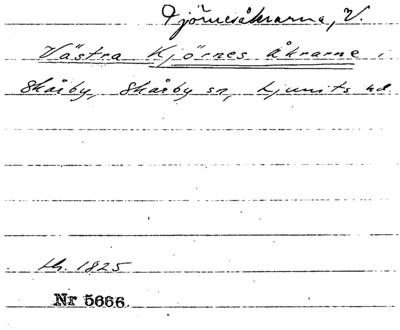 Tjörnesåkrarna, V.
Västra Kjörnes åkrarne i
Skårby, Skårby sn, Ljunits hd
Lh. 1825
Nr 5666.